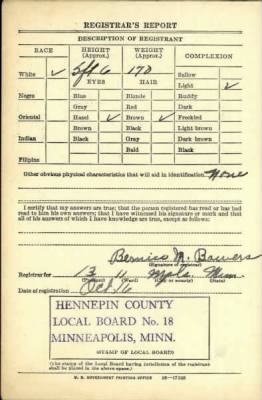 REGISTRAR'S REPORT
DESCRIPTION OF REGISTRANT
RACE HEIGHT (Approx.) WEIGHT (Approx.) COMPLEXION
White ✓ 5ft 6 170 Sallow
EYES HAIR Light ✓
Negro Blue Blonde Ruddy
Gray Red Dark
Oriental Hazel ✓ Brown ✓ Freckled
Brown Black Light brown
Indian Black Gray Dark brown
Bald Black
Filipino
Other obvious physical characteristics that will aid in identification None
I certify that my answers are true; that the person registered has read or has had
read to him his own answers; that I have witnessed his signature or mark and that
all of his answers of which I have knowledge are true, except as follows:
Bernice M. Bowers
(Signature of registrar)
Registrar for 13 11 Mpls. Minn.
(Ward) (City or county) (State)
Date of registration Oct 16
HENNEPIN COUNTY
LOCAL BOARD No. 18
MINNEAPOLIS, MINN.
(STAMP OF LOCAL BOARD)
(The stamp of the Local Board having jurisdiction of the registrant
shall be placed in the above space.)
U. S. GOVERNMENT PRINTING OFFICE